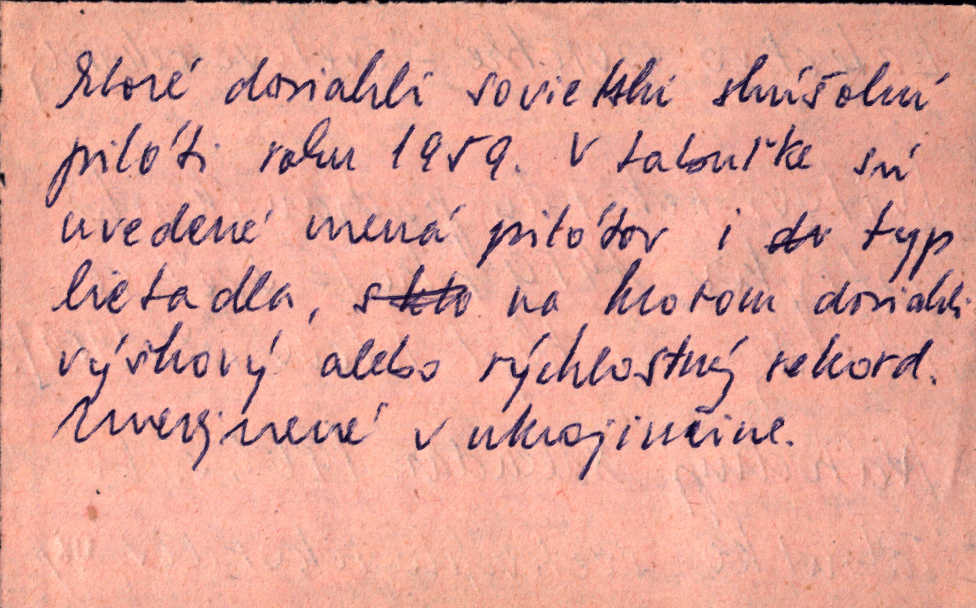 ktoré dosiahli sovietski skúšobní
pilóti roku 1959. V tabuľke sú
uvedené mená pilótov i typ
lietadla, na ktorom dosiahli
výškový alebo rýchlostný rekord.
Zverejnené v ukrajinčine.